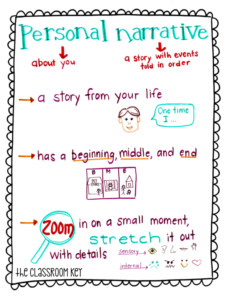 Personal narrative
about you
a story with events
told in order
a story from your life
One time
I ...
has a beginning, middle, and end
B M E
Zoom in on a small moment,
stretch it out
with details
sensory
internal
the CLASSROOM KEY